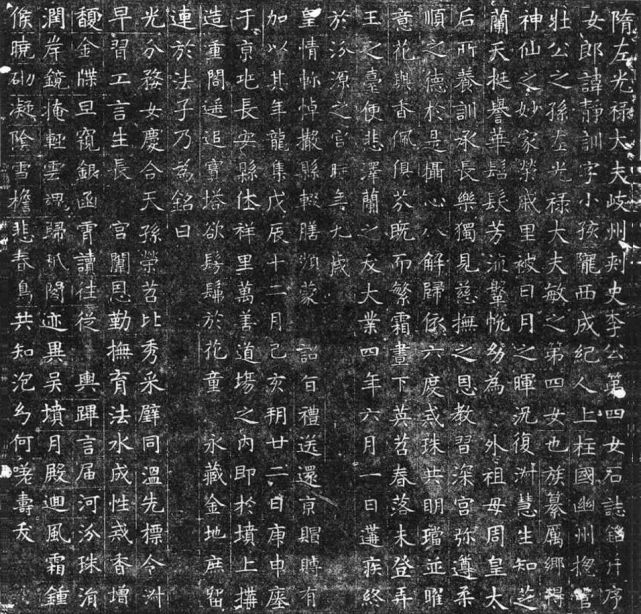 隋左光禄大夫岐州刺史李公第四女石誌銘并序
女郎諱靜訓字小孩隴西成紀人上柱國幽州揔管
壯公之孫左光禄大夫敏之第四女也族纂厲鄉得
神仙之妙家榮戚里被日月之暉況復淑慧生知芝
蘭天挺譽華髫髮芳流鞶帨幼為 外祖母周皇太
后所養訓承長樂獨見慈撫之恩教習深宮弥遵柔
順之德於是攝心八解歸依六度戒珠共明璫並曜
意花與香佩俱芬既而繁霜晝下英苕春落未登弄
玉之臺便悲澤蘭之夭大業四年六月一日遘疾終
於汾源之宮時年九歲
皇情軫悼撤縣輟膳頻蒙 詔旨禮送還京賵賻有
加以其年龍集戊辰十二月己亥朔廿二日庚申瘞
于京兆長安縣休祥里萬善道場之內即於墳上構
造重閣遥追寶塔欲髣髴於花童 永藏金地庶留
連於法子乃為銘曰
光分婺女慶合天孫榮苕比秀采璧同溫先標令淑
早習工言生長 宮闈恩勤撫育法水成性戒香增
馥金牒旦窺銀函霄讀往從 輿蹕言屆河汾珠涓
潤岸鏡掩輕雲魂歸閣迹異吳墳月殿迴風霜鍾
候曉砌凝陰雪檐悲春鳥共知泡幻何嗟壽夭